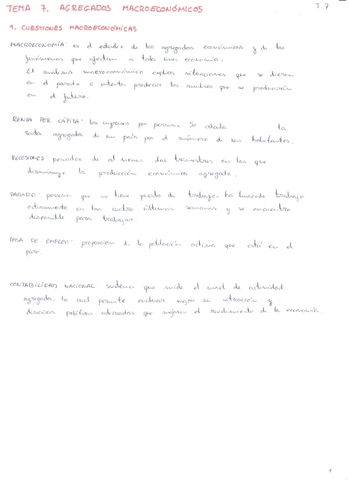 TEMA 7. AGREGADOS MACROECONÓMICOS
T 7
1. CUESTIONES MACROECONÓMICAS
MACROECONOMÍA: es el estudio de los agregados económicos y de los
fenómenos que afectan a toda una economía.
El análisis macroeconómico explica situaciones que se dieron
en el pasado e intenta predecir los cambios que se producirán
en el futuro.
RENTA PER CÁPITA: los ingresos por persona. Se calcula la
renta agregada de un país por el número de sus habitantes.
RECESIONES: periodos de al menos dos trimestres en los que
disminuye la producción económica agregada.
PARADO: persona que no tiene puesto de trabajo, ha buscado trabajo
activamente en las cuatro últimas semanas y se encuentra
disponible para trabajar.
TASA DE EMPLEO: proporción de la población activa que está en el
paro.
CONTABILIDAD NACIONAL: sistema que mide el nivel de actividad
agregada, lo cual permite evaluar mejor su situación y
diseñar políticas adecuadas que mejoren el rendimiento de la economía.
1